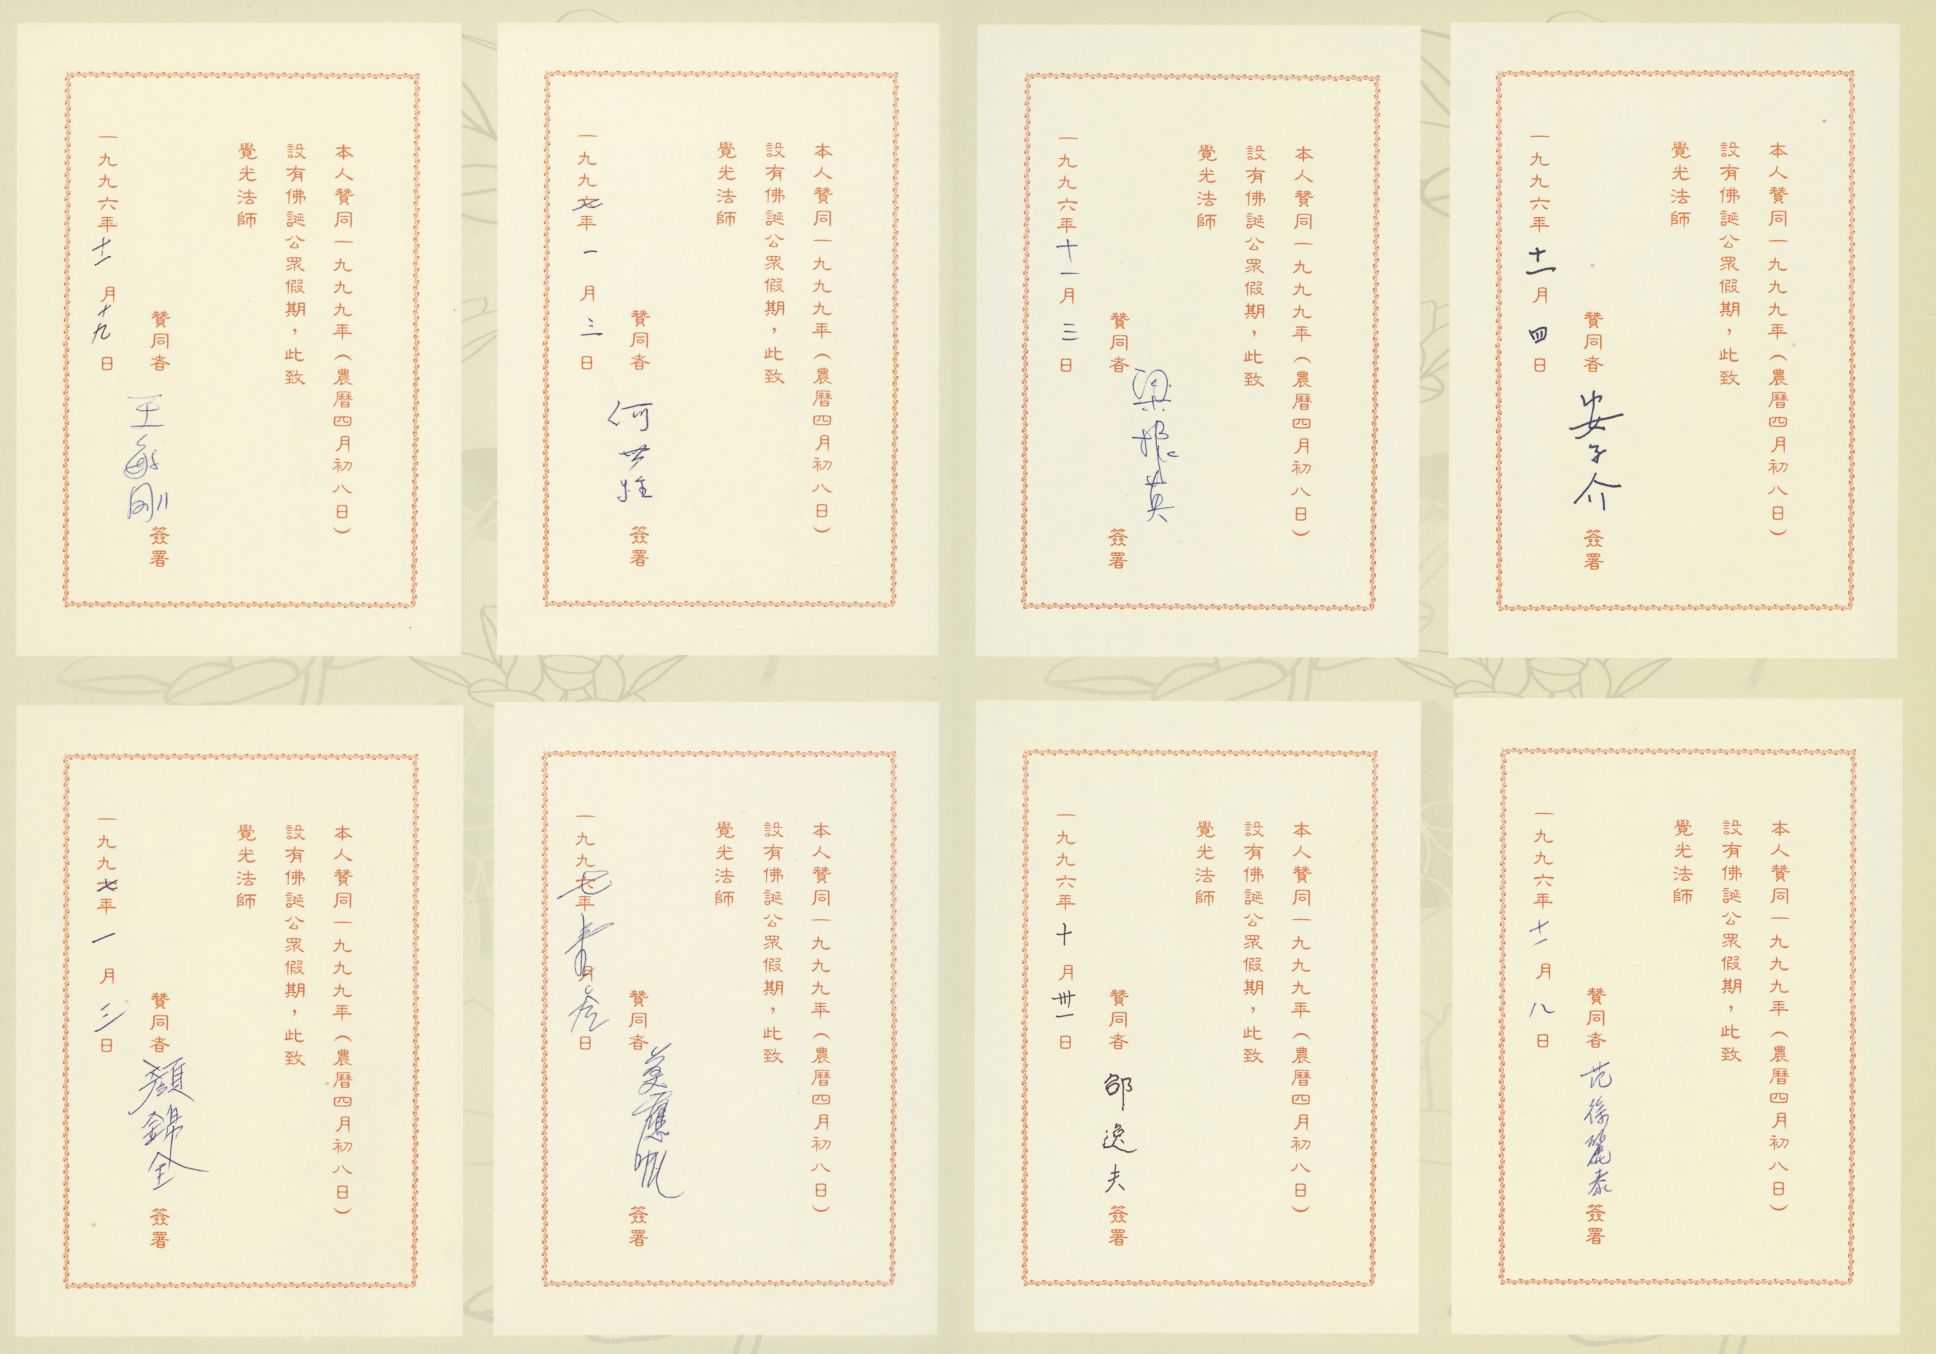 本人贊同一九九九年（農曆四月初八日）
設有佛誕公眾假期，此致
覺光法師
贊同者 安子介 簽署
一九九六年十一月四日
本人贊同一九九九年（農曆四月初八日）
設有佛誕公眾假期，此致
覺光法師
贊同者 梁振英 簽署
一九九六年十一月三日
本人贊同一九九九年（農曆四月初八日）
設有佛誕公眾假期，此致
覺光法師
贊同者 何世柱 簽署
一九九七年一月三日
本人贊同一九九九年（農曆四月初八日）
設有佛誕公眾假期，此致
覺光法師
贊同者 王敏剛 簽署
一九九六年十一月十九日
本人贊同一九九九年（農曆四月初八日）
設有佛誕公眾假期，此致
覺光法師
贊同者 范徐麗泰 簽署
一九九六年十一月八日
本人贊同一九九九年（農曆四月初八日）
設有佛誕公眾假期，此致
覺光法師
贊同者 邵逸夫 簽署
一九九六年十月卅一日
本人贊同一九九九年（農曆四月初八日）
設有佛誕公眾假期，此致
覺光法師
贊同者 莫應帆 簽署
一九九七年月日
本人贊同一九九九年（農曆四月初八日）
設有佛誕公眾假期，此致
覺光法師
贊同者 顏錦全 簽署
一九九七年一月三日